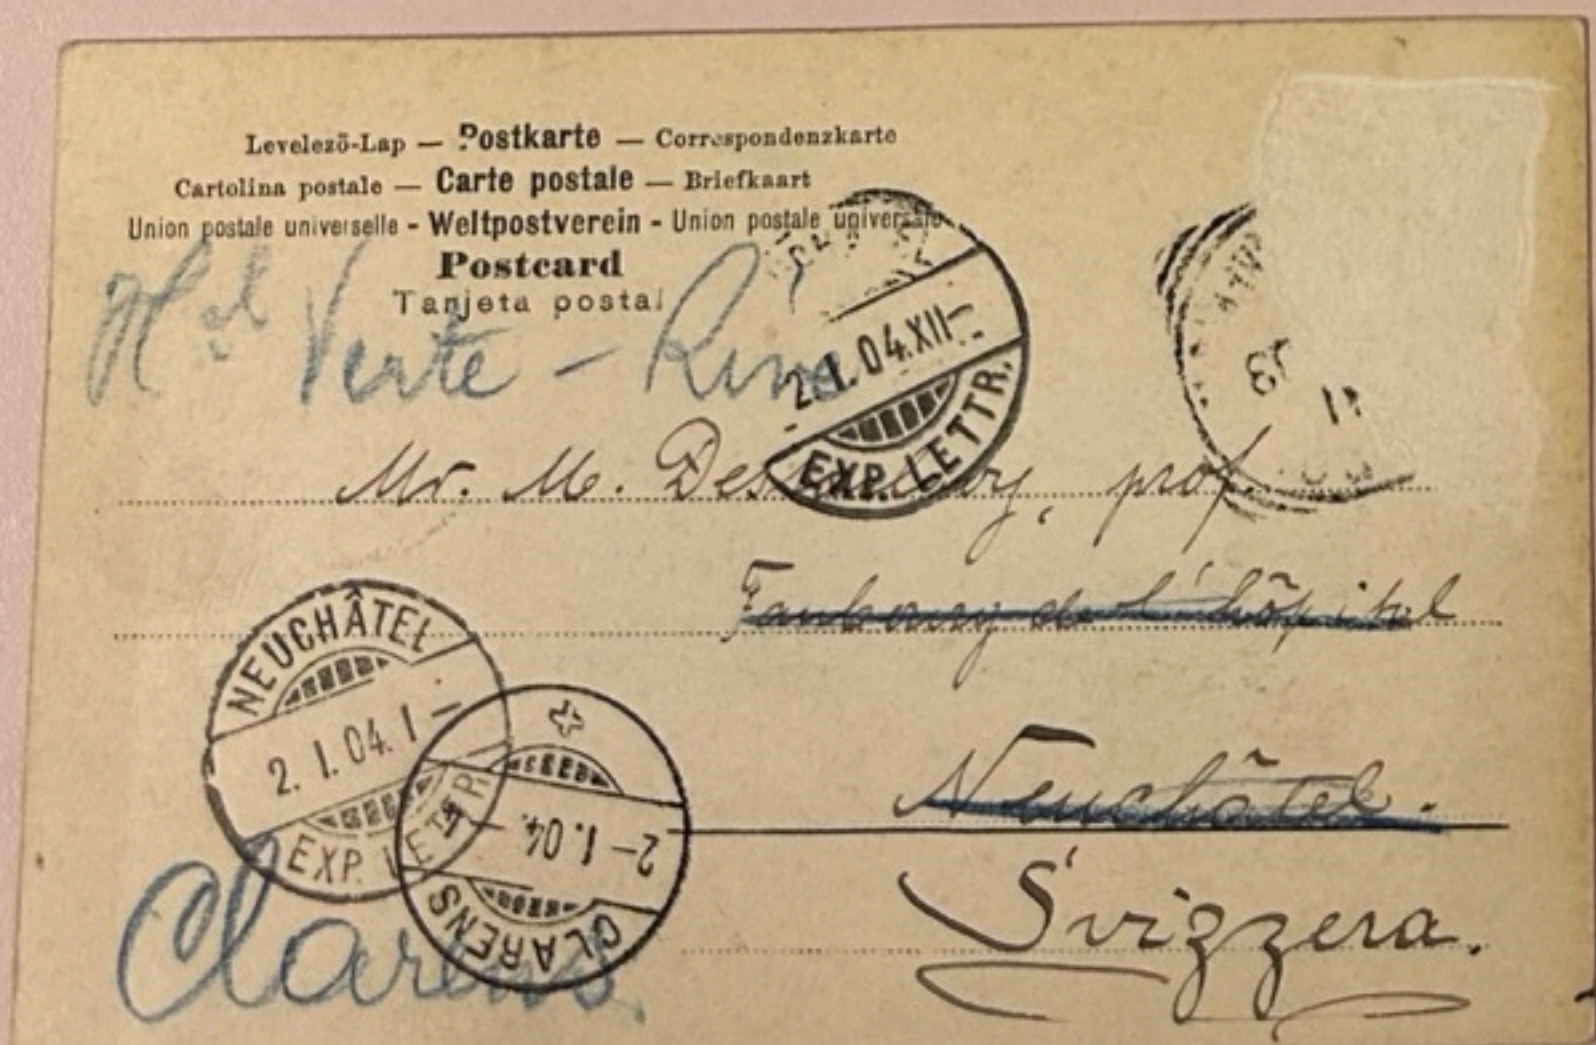 Levelezö-Lap — Postkarte — Correspondenzkarte
Cartolina postale — Carte postale — Briefkaart
Union postale universelle - Weltpostverein - Union postale universale
Postcard
Tarjeta postal
Hel Verte - Rive
2.I.04.XII-
EXP. LETTR.
Mr. M. prof.
Faubourg de l'hôpital
NEUCHÂTEL
2.I.04.I-
EXP. LETTR.
Neuchâtel.
2-I.04.
CLARENS
Svizzera.
Clarens.